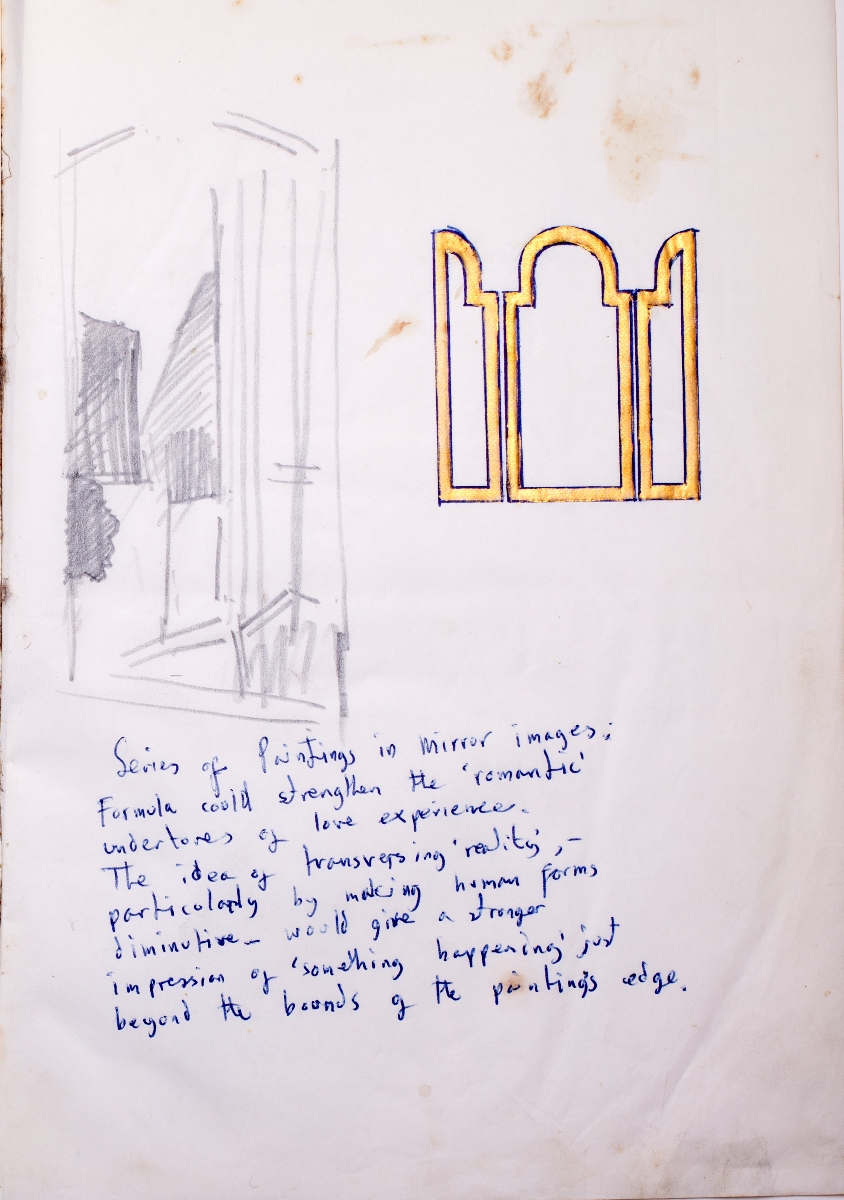 Series of Paintings in Mirror images;
Formula could strengthen the 'romantic'
undertones of love experience.
The idea of transversing 'reality', –
particularly by making human forms
diminutive – would give a stronger
impression of 'something happening' just
beyond the bounds of the painting's edge.